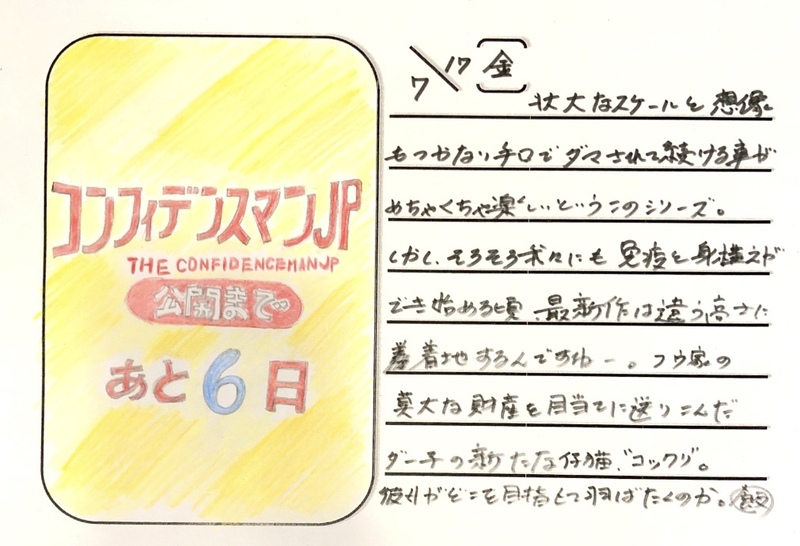 コンフィデンスマンJP
THE CONFIDENCEMAN JP
公開まで
あと6日
7/17 金
壮大なスケールと想像
もつかない手口でダマされて続ける事が
めちゃくちゃ楽しいというこのシリーズ。
しかし、そろそろ我々にも免疫と身構えが
でき始める頃 最新作は違う高さに
着地するんですねー。フウ家の
莫大な財産を目当てに送りこんだ
ダー子の新たな仔猫、“コックリ”。
彼女がどこを目指して羽ばたくのか。